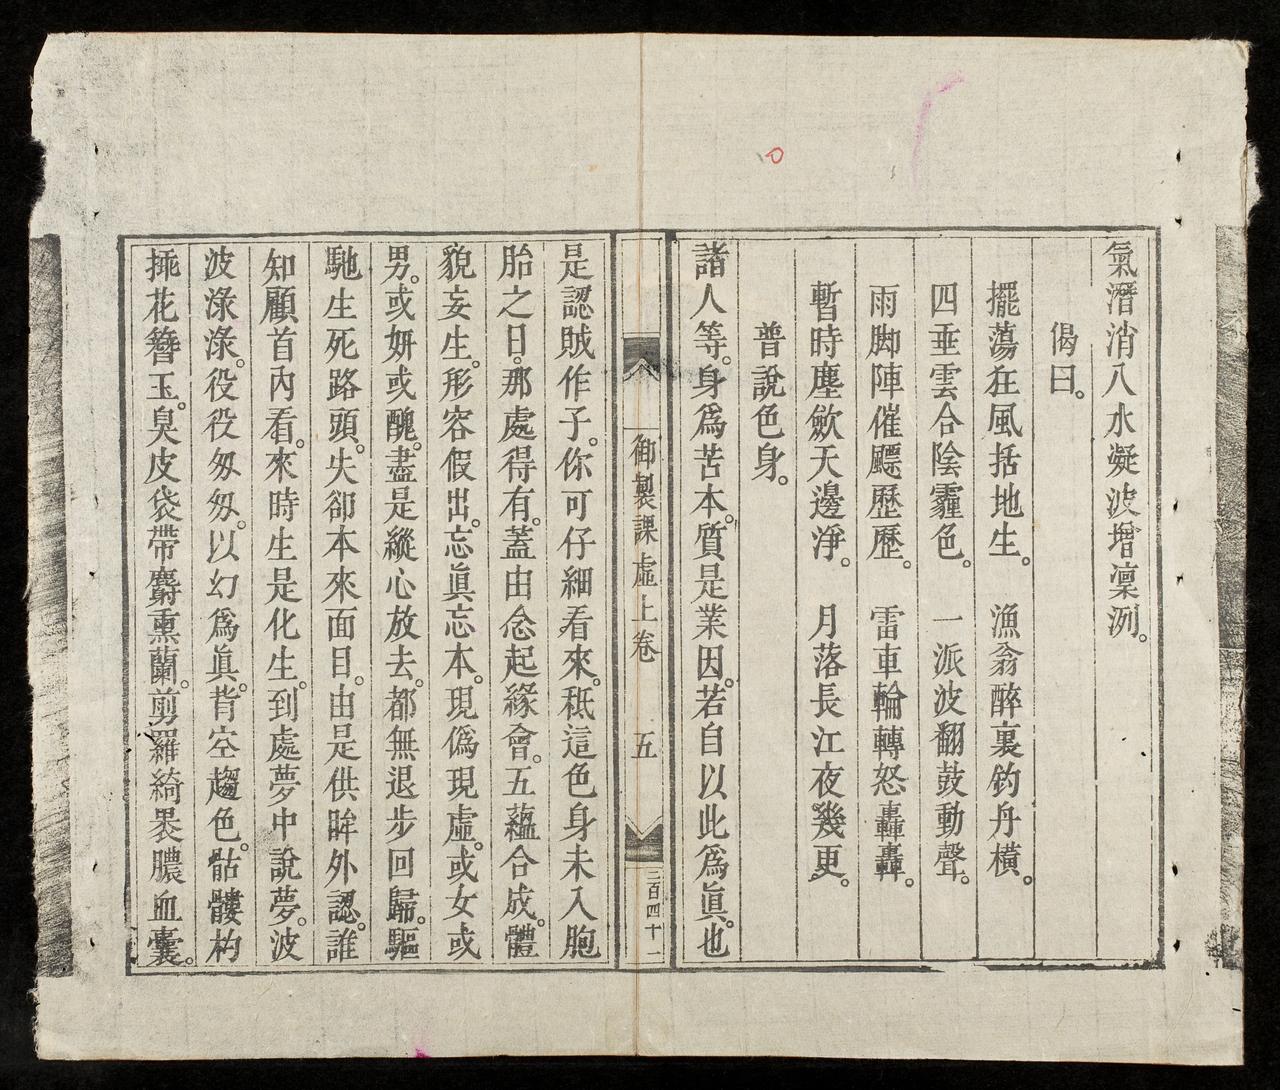 氣潛消八水凝波增凜冽。
偈曰。
擺蕩狂風括地生。　漁翁醉裏釣舟橫。
四垂雲合陰霾色。　一派波翻鼓動聲。
雨脚陣催颼歷歷。　雷車輪轉怒轟轟。
暫時塵斂天邊淨。　月落長江夜幾更。
普說色身。
諸人等。身爲苦本。質是業因。若自以此爲眞。也
御製課虛上卷　五　三百四十一
是認賊作子。你可仔細看來。秪這色身未入胞
胎之日。那處得有。蓋由念起緣會。五蘊合成。體
貌妄生。形容假出。忘眞忘本。現僞現虛。或女或
男。或妍或醜。盡是縱心放去。都無退步回歸。驅
馳生死路頭。失卻本來面目。由是供眸外認。誰
知顧首內看。來時生是化生。到處夢中說夢。波
波淥淥。役役匆匆。以幻爲眞。背空趨色。骷髏杓
揷花簪玉。臭皮袋帶麝熏蘭。剪羅綺褁膿血囊。